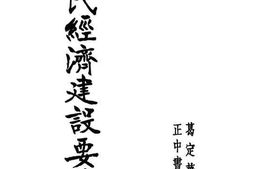 民經濟建設要
葛定華
正中書